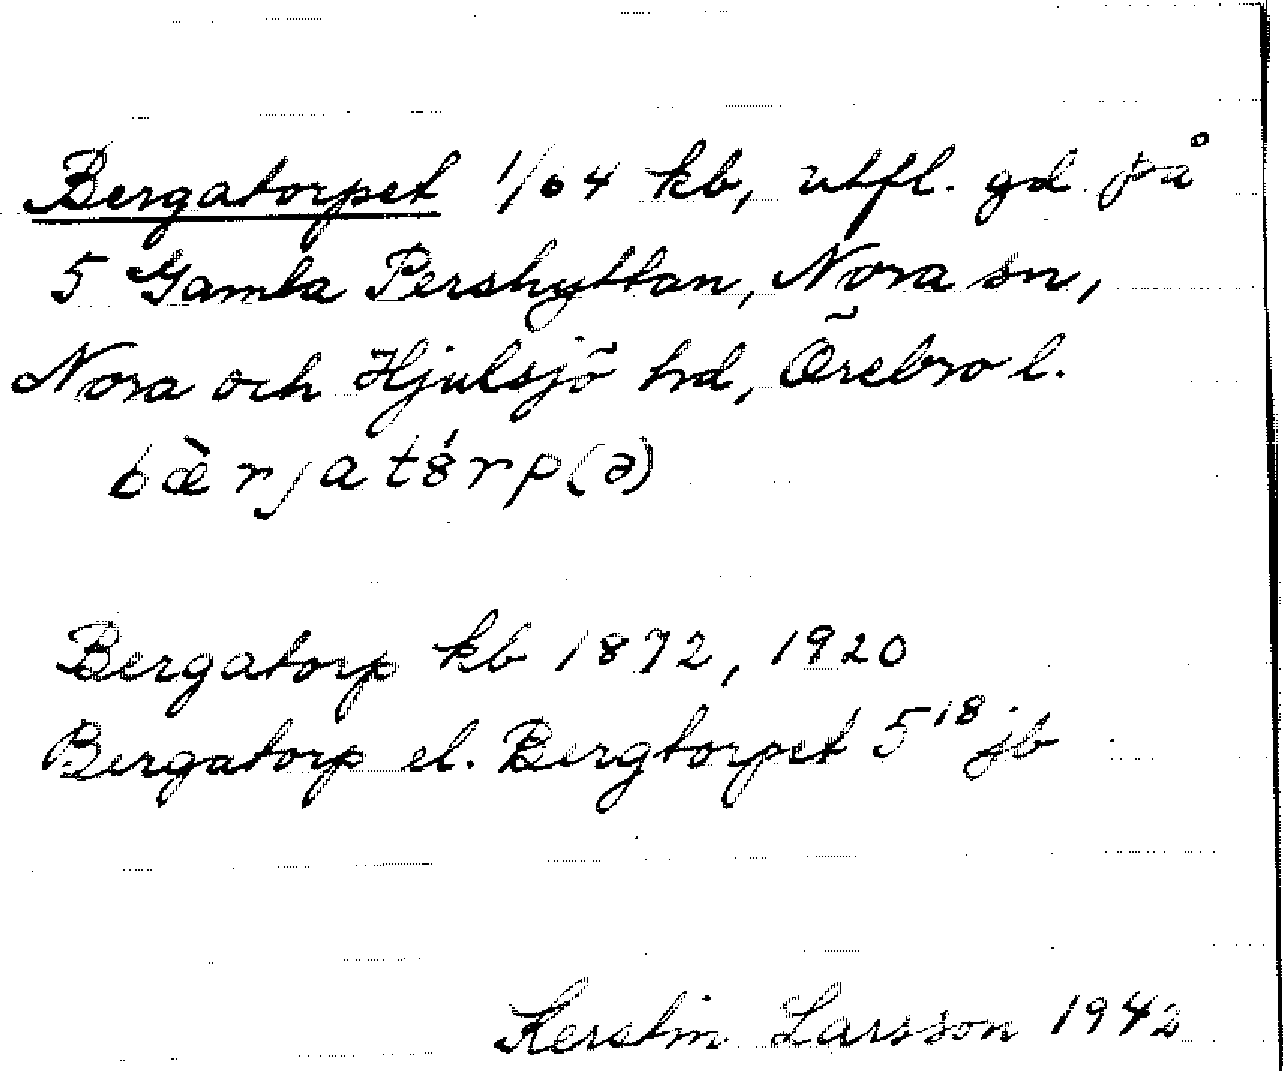 Bergatorpet 1/64 kb, utfl. gd på
5 Gamla Pershyttan, Nora sn,
Nora och Hjulsjö hd, Örebro l.
bæ̀rjatȣ́rp(ə)
Bergatorp kb 1872, 1920
Bergatorp el. Bergtorpet 5¹⁸ jb
Kerstin Larsson 1942